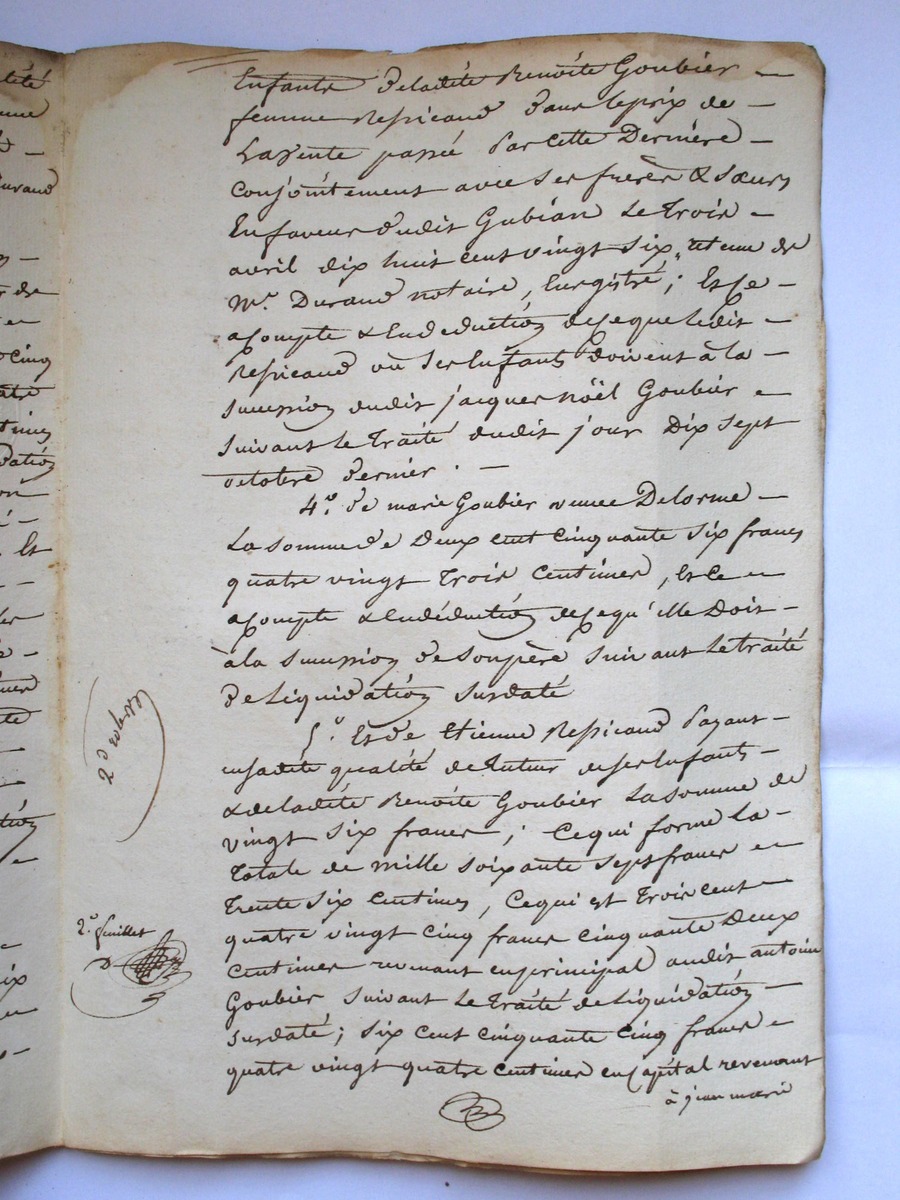 Enfants de ladite Benoîte Goubier —
femme Ressicaud dans le prix de —
La vente passée Par cette Dernière —
conjointement avec ses frères & sœurs
En faveur dudit Gubian Le Trois —
avril dix huit cent vingt six, et une de
Mr. Durand notaire, Enregistré; Et ce —
acompte & En déduction de ce que Ledit —
Ressicaud ou ses Enfants doivent à la —
succession dudit jacques noël Goubier —
suivant Le Traité dudit jour Dix Sept
octobre dernier. —
4.° de marie Goubier veuve Delorme —
La somme de Deux cent cinquante six francs
quatre vingt Trois Centimes, Et ce —
acompte & En déduction de ce qu'elle Doit —
à la succession de son père suivant Le traité
de Liquidation susdaté
5.° Et de Etienne Ressicaud Payant —
en sadite qualité de tuteur de ses Enfants —
& de ladite Benoîte Goubier La somme de
vingt six francs; Ce qui forme La —
Totale de mille soixante sept francs —
Trente six Centimes, Ce qui est Trois cent —
quatre vingt cinq francs cinquante Deux
Centimes revenant en principal audit antoine
Goubier suivant Le Traité de Liquidation —
susdaté; six cent cinquante cinq francs —
quatre vingt quatre centimes en capital revenant
à jean marie
2.e feuillet